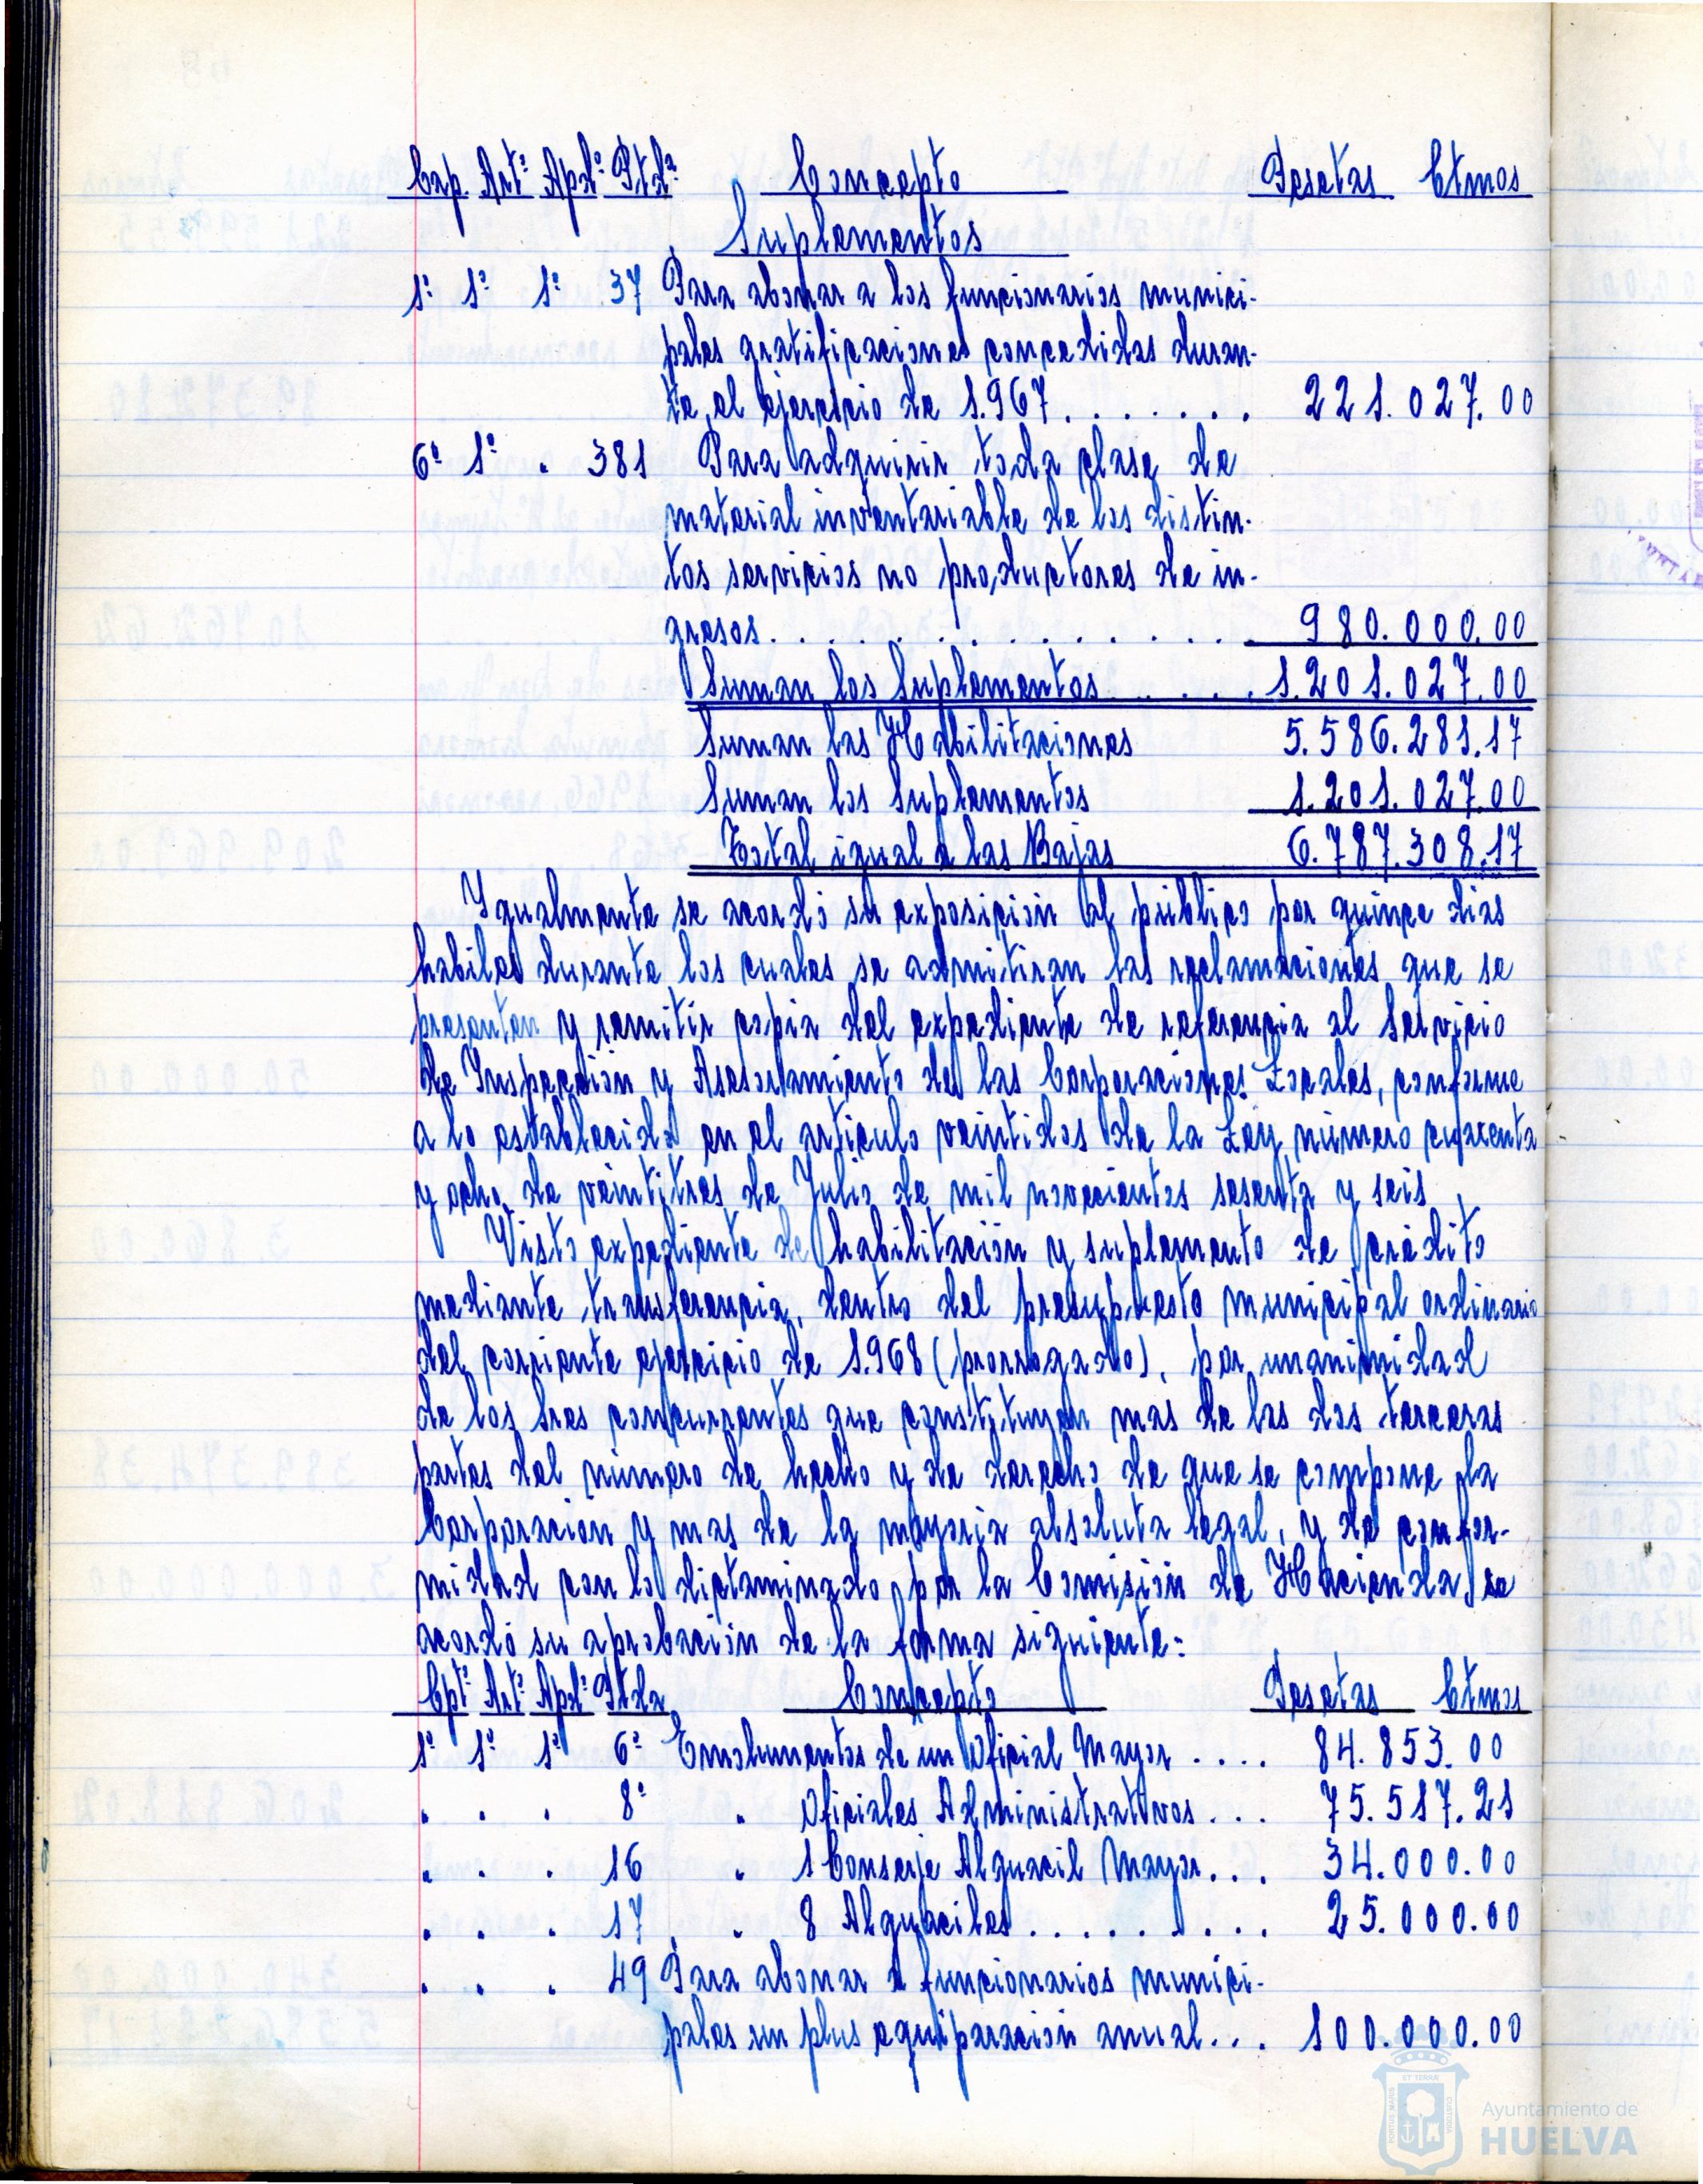 Cap. Artº Apdº Ptdª Concepto Pesetas Ctmos
Suplementos
1º 1º 1º 37 Para abonar a los funcionarios munici-
pales gratificaciones concedidas duran-
te el ejercicio de 1.967. . . . . . . 221.027.00
6º 1º . 381 Para adquirir toda clase de
material inventariable de los distin-
tos servicios no productores de in-
gresos. . . . . . . . . . . . 980.000.00
Suman los Suplementos. . . . . 1.201.027.00
Suman las Habilitaciones 5.586.281.17
Suman los Suplementos 1.201.027.00
Total igual a las Bajas 6.787.308.17
Ygualmente se acordó su exposición al público por quince dias
habiles durante los cuales se admitiran las reclamaciones que se
presenten y remitir copia del expediente de referencia al Servicio
de Inspección y Asesoramiento de las Corporaciones Locales, conforme
a lo establecido en el articulo veintidos de la Ley número cuarenta
y ocho de veintitres de Julio de mil novecientos sesenta y seis
Visto expediente de habilitación y suplemento de crédito
mediante transferencia, dentro del presupuesto municipal ordinario
del corriente ejercicio de 1.968 (prorrogado), por unanimidad
de los Sres concurrentes que constituyen mas de las dos terceras
partes del número de hecho y de derecho de que se compone la
Corporacion y mas de la mayoria absoluta legal, y de confor-
midad con lo dictaminado por la Comisión de Hacienda, se
acordó su aprobación de la forma siguiente:
Cptº Artº Apdº Ptda Concepto Pesetas Ctmos
1º 1º 1º 6º Emolumentos de un Oficial Mayor . . . . 84.853.00
. . . 8º . Oficiales Administrativos . . . 75.517.21
. . . 16 . 1 Conserje Alguacil Mayor. . . 34.000.00
. . . 17 . 8 Alguaciles. . . . . . . . . 25.000.00
. . . 49 Para abonar a funcionarios munici-
pales un plus equiparación anual. . . 100.000.00
Ayuntamiento de
HUELVA